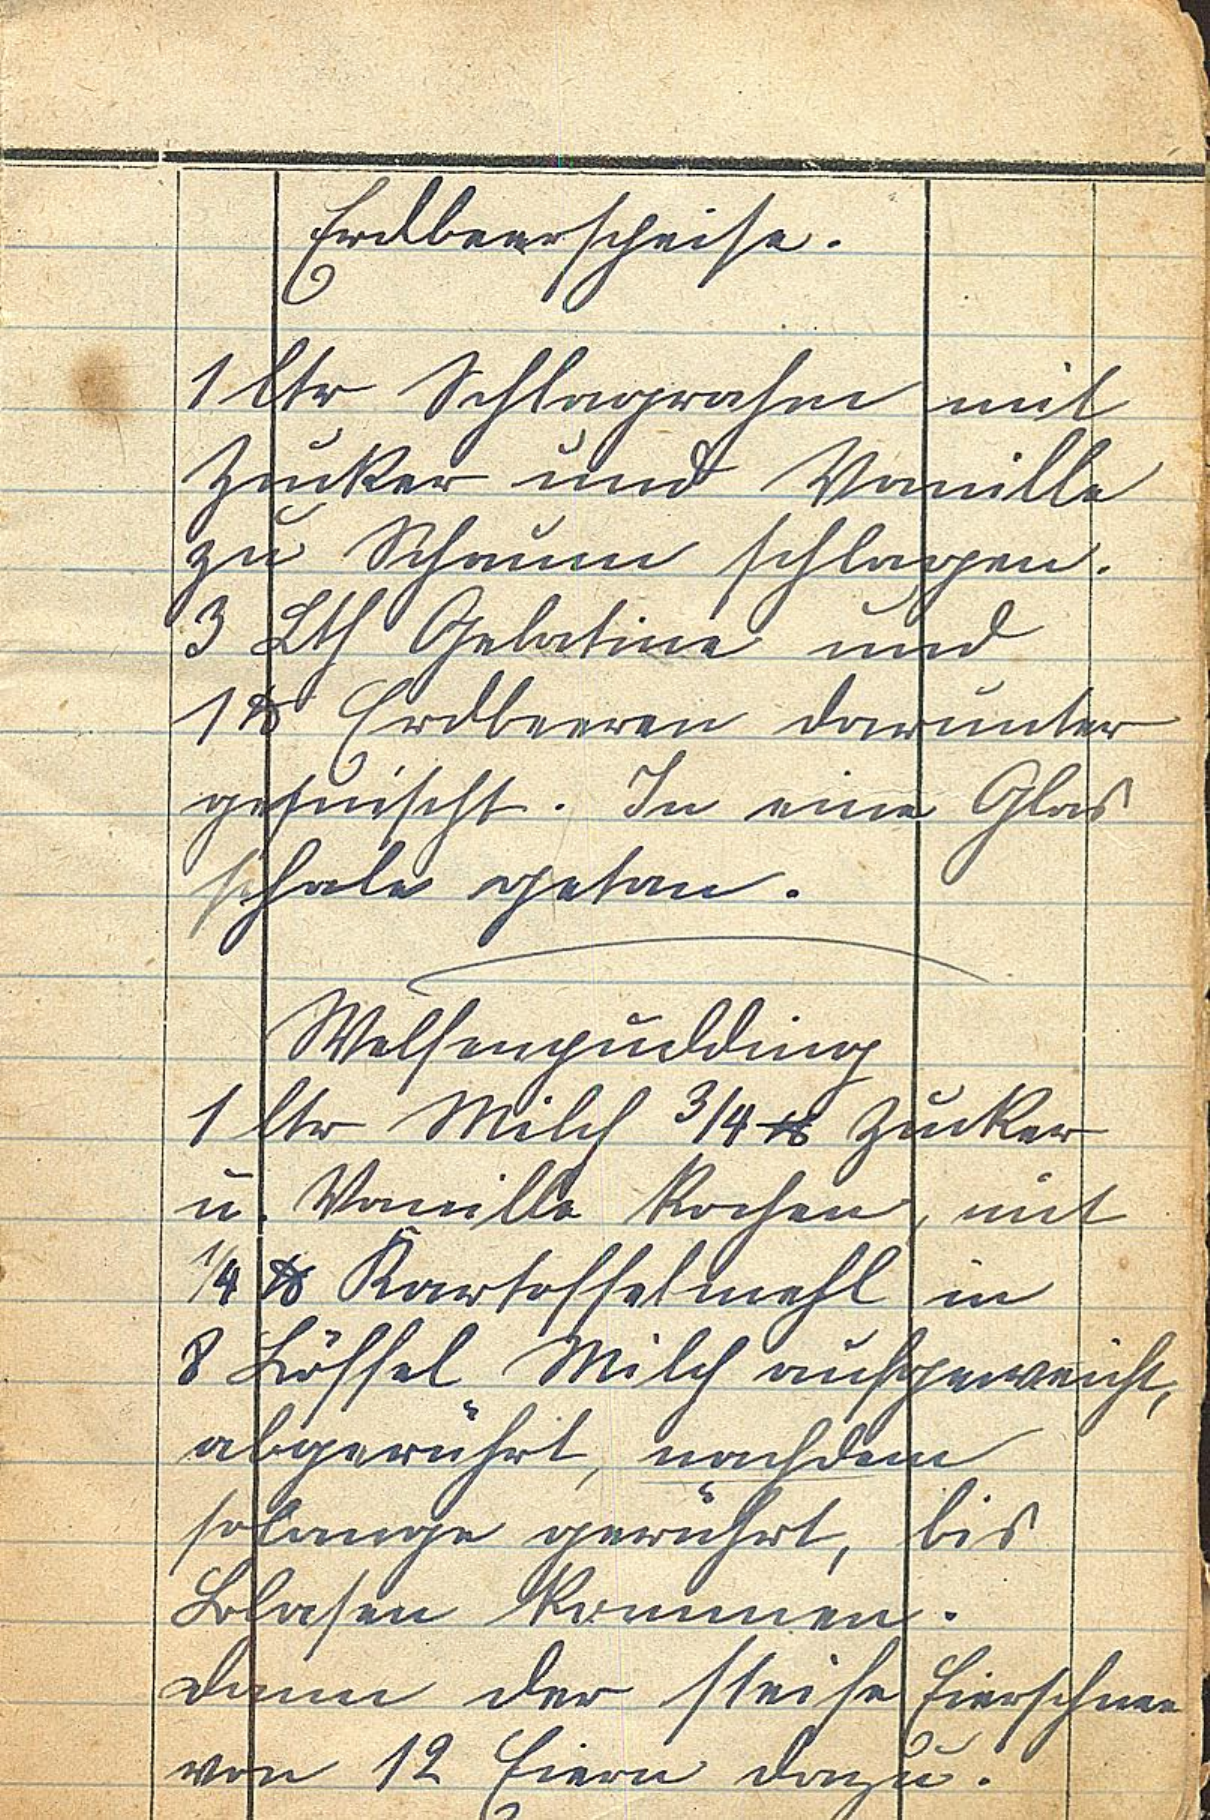 Erdbeerspeise.
1 ltr Schlagrahm mit
Zucker und Vanille
zu Schaum schlagen.
3 Lth Gelatine und
1 ℔ Erdbeeren darunter
gemischt. In eine Glas
schale getan.
Welfenpudding
1 ltr Milch 3/4 ℔ Zucker
u. Vanille kochen, mit
1/4 ℔ Kartoffelmehl in
8 Löffel Milch aufgeweicht,
abgerührt, nachdem
solange gerührt, bis
Blasen kommen.
dann der steife Eierschnee
von 12 Eiern dazu.